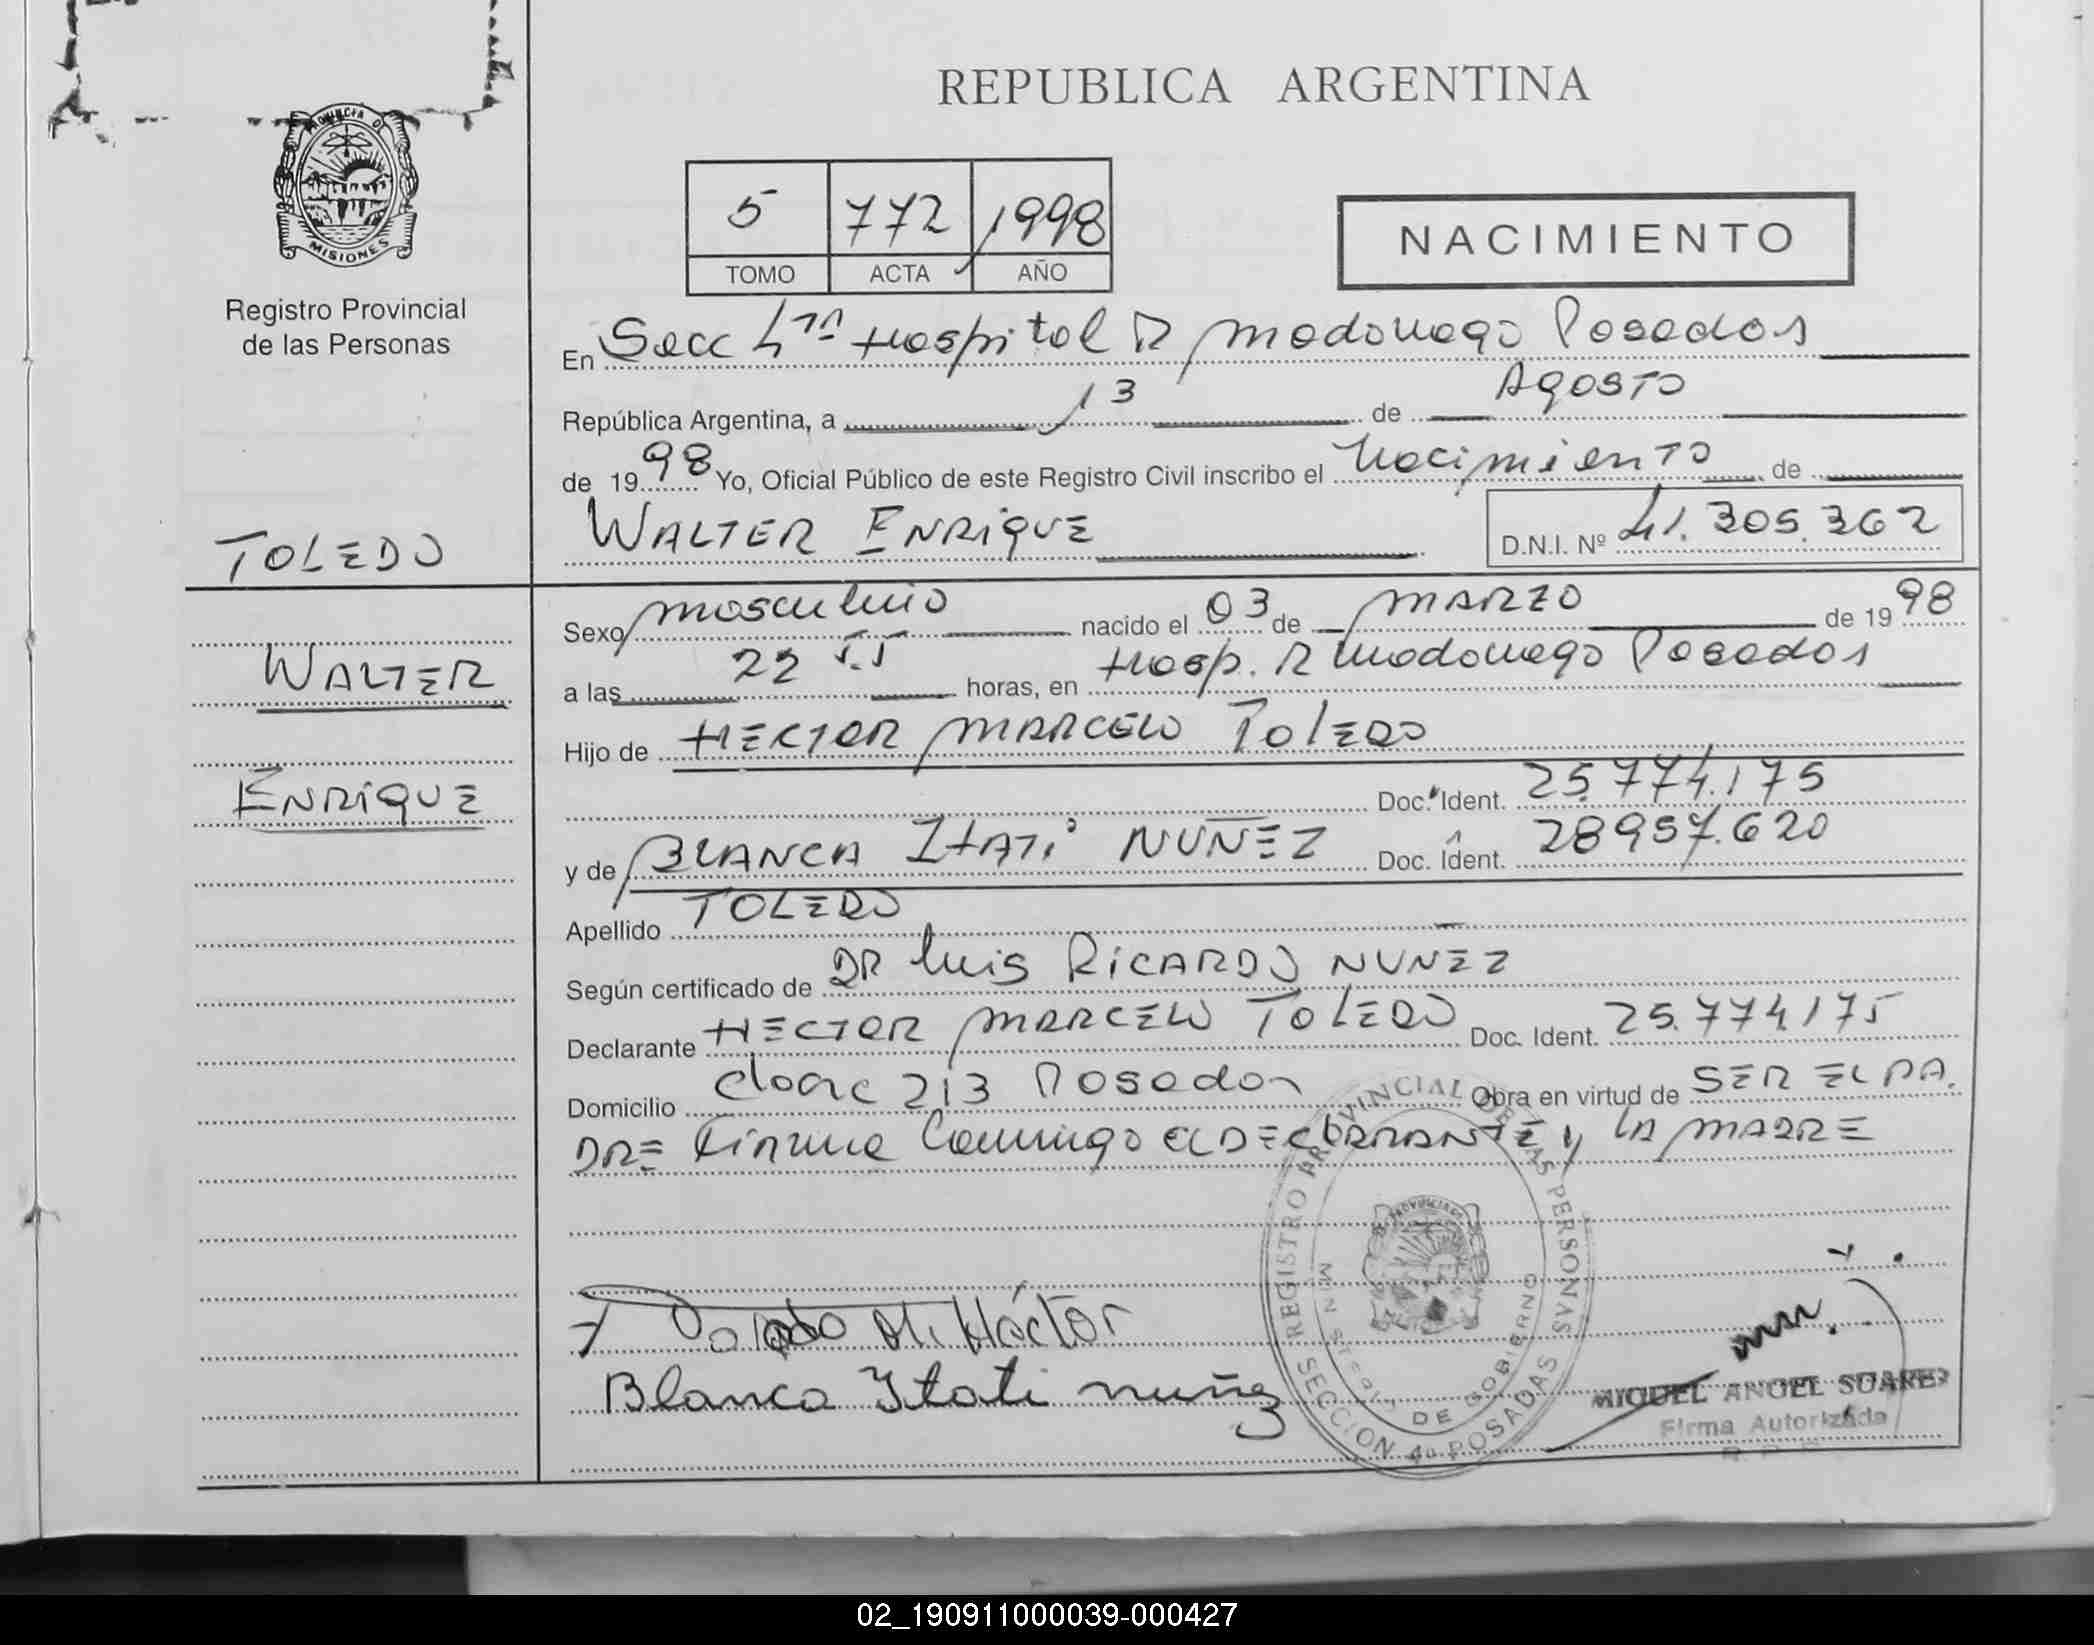 REPUBLICA ARGENTINA
PROVINCIA DE
MISIONES
Registro Provincial
de las Personas
5 772 1998
TOMO ACTA AÑO
NACIMIENTO
En Secc 4ta Hospital R Madonaga Posadas
República Argentina, a 13 de Agosto
de 1998 Yo, Oficial Público de este Registro Civil inscribo el Nacimiento de
TOLEDO
WALTER ENRIQUE D.N.I. Nº 41.305.362
Sexo masculino nacido el 03 de MARZO de 1998
WALTER
a las 22 55 horas, en Hosp. R Madonaga Posadas
Hijo de HECTOR MARCELO TOLEDO
ENRIQUE
Doc. Ident. 25.774.175
y de BLANCA ITATI NUÑEZ Doc. Ident. 28957.620
Apellido TOLEDO
Según certificado de DR Luis RICARDO NUNEZ
Declarante HECTOR MARCELO TOLEDO Doc. Ident. 25.774.175
Domicilio 213 Posadas Obra en virtud de SER EL PA.
DRE Firma Conmigo EL DECLARANTE y LA MADRE
REGISTRO PROVINCIAL DE LAS PERSONAS
MINISTERIO DE GOBIERNO
SECCION 4a POSADAS
Toledo M. Héctor
Blanca Itati nuñez
MIGUEL ANGEL SUAREZ
Firma Autorizada
02_190911000039-000427